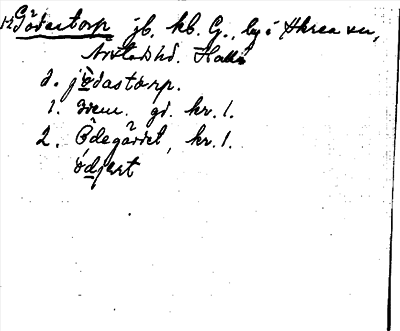 Gödastorp jb. kb. G., by i Skrea sn,
Årstads hd. Hall.
d. jödastorp.
1. Idem. gd. kr. 1.
2. Ödegärdet, kr. 1.
ödjert